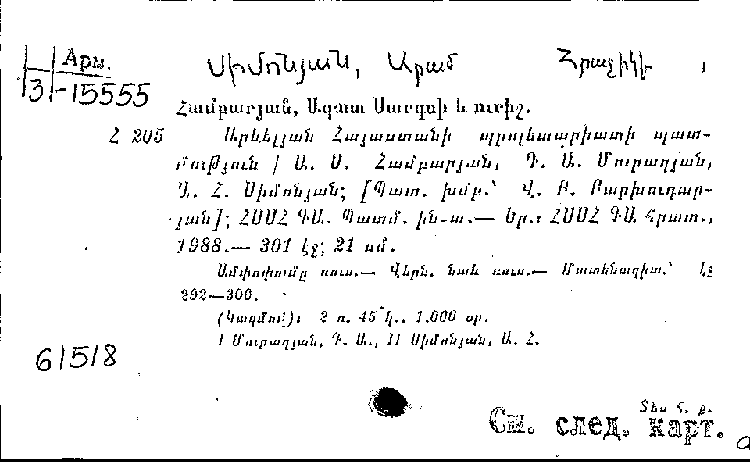 Арм.
3-15555
Սիմոնյան, Արամ Հրաչիկի
Համբարյան, Ազատ Սարգսի և ուրիշ.
Հ 205
Արևելյան Հայաստանի պրոլետարիատի պատ-
մություն / Ա. Ս. Համբարյան, Գ. Ա. Մուրադյան,
Ա. Հ. Սիմոնյան; [Պատ. խմբ.՝ Վ. Բ. Բարխուդար-
յան]; ՀՍՍՀ ԳԱ. Պատմ. ին-տ.— Եր.: ՀՍՍՀ ԳԱ հրատ.,
1988.— 301 էջ; 21 սմ.
Ամփոփումը ռուս.— Վերն. նաև ռուս.— Մատենագիտ.՝ էջ
292—300.
(Կազմով): 2 ռ. 45 կ., 1.000 օր.
I Մուրադյան, Գ. Ա., II Սիմոնյան, Ա. Հ.
61518
Տես հ. ք.
См. след. карт.